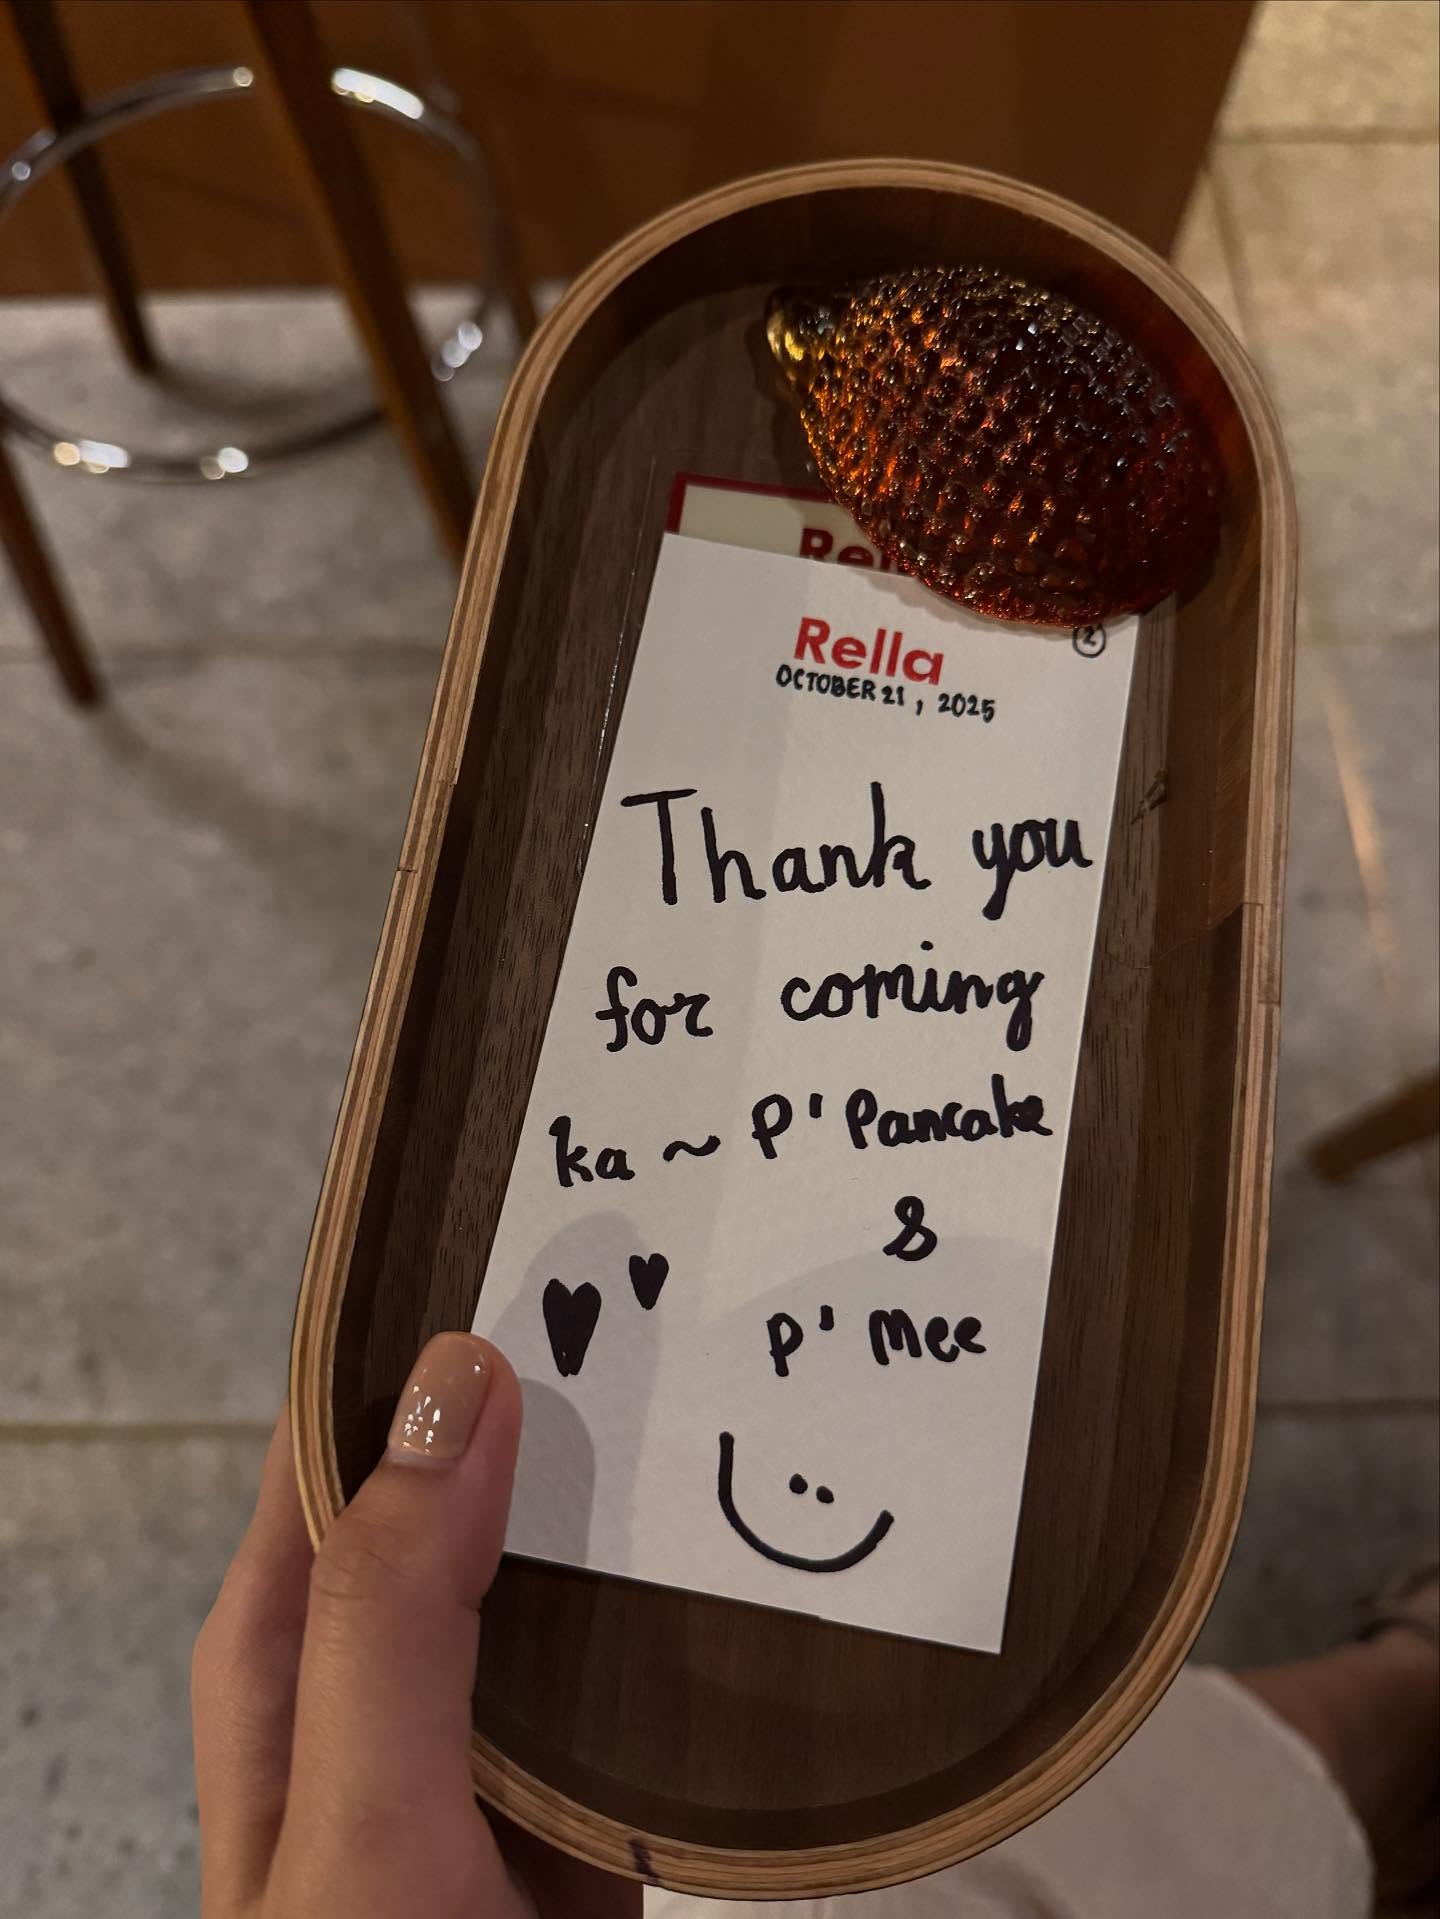 Rella
②
OCTOBER 21, 2025
Thank you
for coming
ka ~ P' Pancake
&
P' Mee